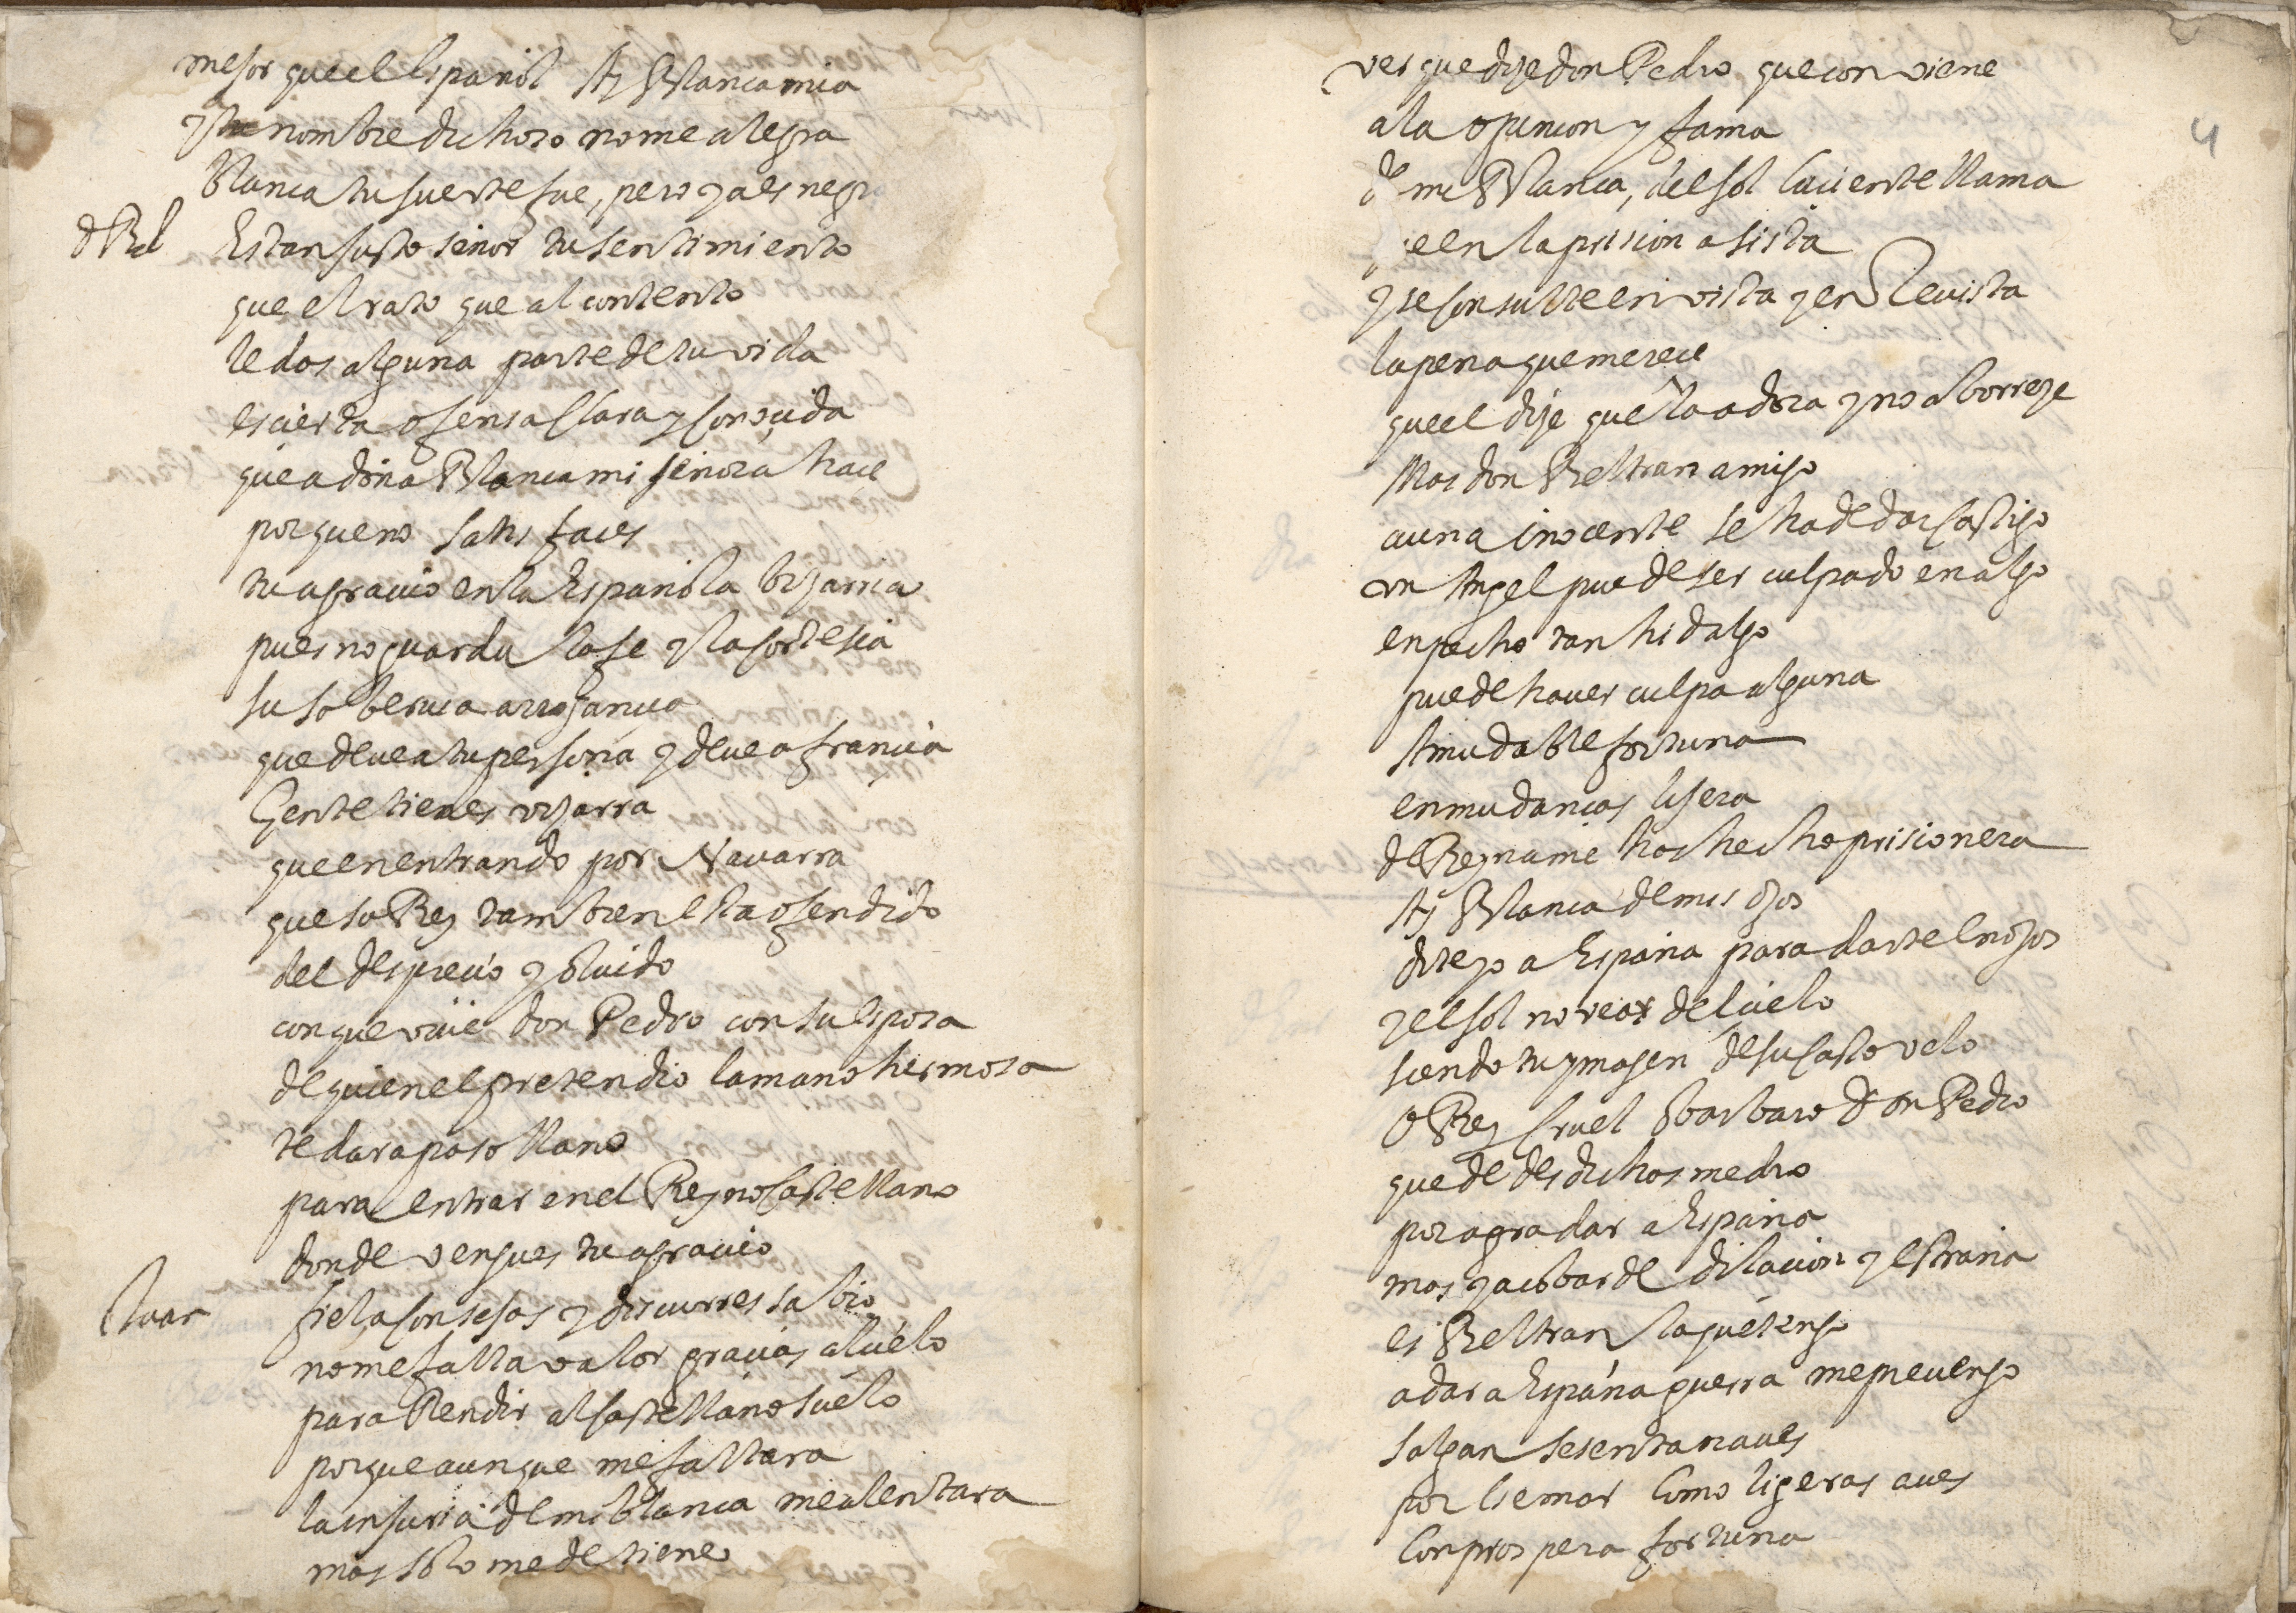 mejor que el español Ay Blanca mia
y tu nombre dichoso no me alegra
blanca tu suerte fue, pero ya es negr
d Bel Es tan justo señor tu sentimiento
que el rato que al contento
le das alguna parte de tu vida
es cierta ofensa clara y conocida
que a doña Blanca mi señora haces
porque no satisfaces
tu agrauio en la Española bizarria
pues no guarda la fe y la cortesia
su soberuia arrogancia
que deue a tu persona y deue a francia
Gente tienes vizarra
que en entrando por Nauarra
que su Rey tambien esta ofendido
del desprecio y oluido
con que viue don Pedro con su esposa
de quien el pretendio la mano hermosa
te dara paso llano
para entrar en el Reyno Castellano
donde vengues tu agrauio
Juan fiel aconsejas y discurres sabio
no me falta valor gracias al cielo
para Rendir al castellano suelo
porque aunque me faltara
la injuria de mi blanca me alentara
mas solo me detiene
4
ver que dize don Pedro que conviene
a la opinion y fama
de mi Blanca, del sol luciente llama
e en la prision asista
y se consulte en vista y en Reuista
la pena que merece
que el dize que la adora y no aborreze
Mas don Beltran amigo
a una inocente se ha de dar castigo
vn Angel puede ser culpado en algo
en pecho tan hidalgo
puede hauer culpa alguna
A mudable fortuna
en mudanças lijera
de Reyna me has hecho prisionera
Ay Blanca de mis ojos
dite yo a España para darte enojos
y el sol no veas del cielo
siendo tu ymagen de su casto velo
O Rey cruel barbaro don Pedro
que de desdichas medro
por agradar a España
mas ya cobarde dilacion y estraña
es Beltran la que tengo
a dar a España guerra me preuengo
salgan sesenta naues
por ese mar Como ligeras aues
Con prospera fortuna